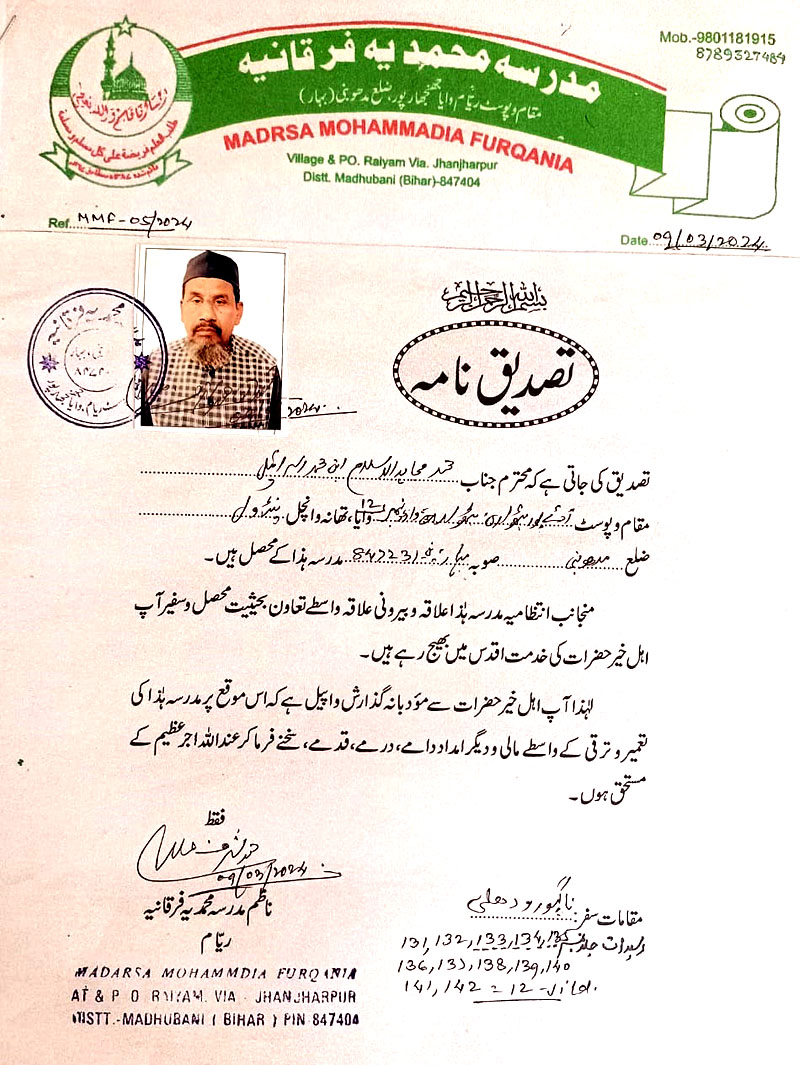 Mob.-9801181915
8789327484
مدرسہ محمدیہ فرقانیہ
مقام و پوسٹ ریّام وایا جھنجھارپور، ضلع مدھوبنی (بہار)
طلب العلم فریضۃ علی کل مسلم و مسلمۃ
MADRSA MOHAMMADIA FURQANIA
Village & PO. Raiyam Via. Jhanjharpur
Distt. Madhubani (Bihar)-847404
Ref....MMF-05/2024
Date....09/03/2024
بسم اللہ الرحمن الرحیم
محمدیہ فرقانیہ
تصدیق نامہ
2024
تصدیق کی جاتی ہے کہ محترم جناب محمد مجاہد الاسلام ابن محمد
مقام و پوسٹ وارڈ نمبر 12 وایا، تھانہ وانچل
ضلع مدھوبنی صوبہ بہار 847231 مدرسہ ہذا کے محصل ہیں۔
منجانب انتظامیہ مدرسہ ہٰذا علاقہ و بیرونی علاقہ واسطے تعاون بحیثیت محصل و سفیر آپ
اہل خیر حضرات کی خدمت اقدس میں بھیج رہے ہیں۔
لہٰذا آپ اہل خیر حضرات سے مؤدبانہ گذارش و اپیل ہے کہ اس موقع پر مدرسہ ہٰذا کی
تعمیر و ترقی کے واسطے مالی و دیگر امداد دامے، درمے، قدمے، سخنے فرما کر عنداللہ اجر عظیم کے
مستحق ہوں۔
فقط
09/03/2024
ناظم مدرسہ محمدیہ فرقانیہ
ریّام
MADARSA MOHAMMDIA FURQANIA
AT & P O RAIYAM. VIA - JHANJHARPUR
DISTT.-MADHUBANI ( BIHAR ) PIN 847404
مقامات سفر: ناگپور و دھلی
رسیدات جلد نمبر 131, 132, 133, 134, 135
136, 137, 138, 139, 140
141, 142 = 12-Jild.